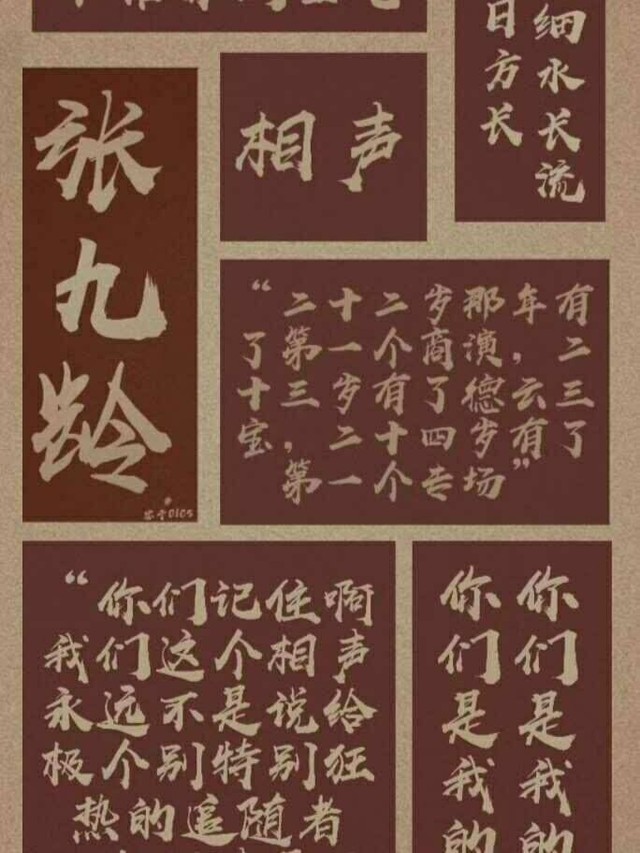 细水长流
日方长
张九龄
相声
“二十二岁那年有
了第一个商演，二
十三岁有了德云三
宝，二十四岁有了
第一个专场”
“你们记住啊
我们这个相声
永远不是说给
极个别特别狂
热的追随者
你们是我的
你们是我的